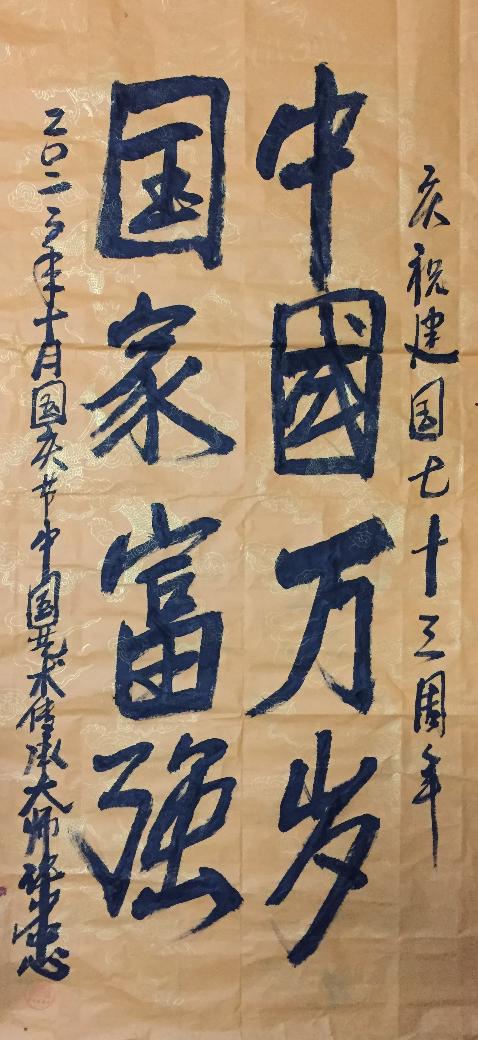 庆祝建国七十三周年
中國万岁
国家富强
二〇二二年十月国庆节中国艺术传承大师张忠